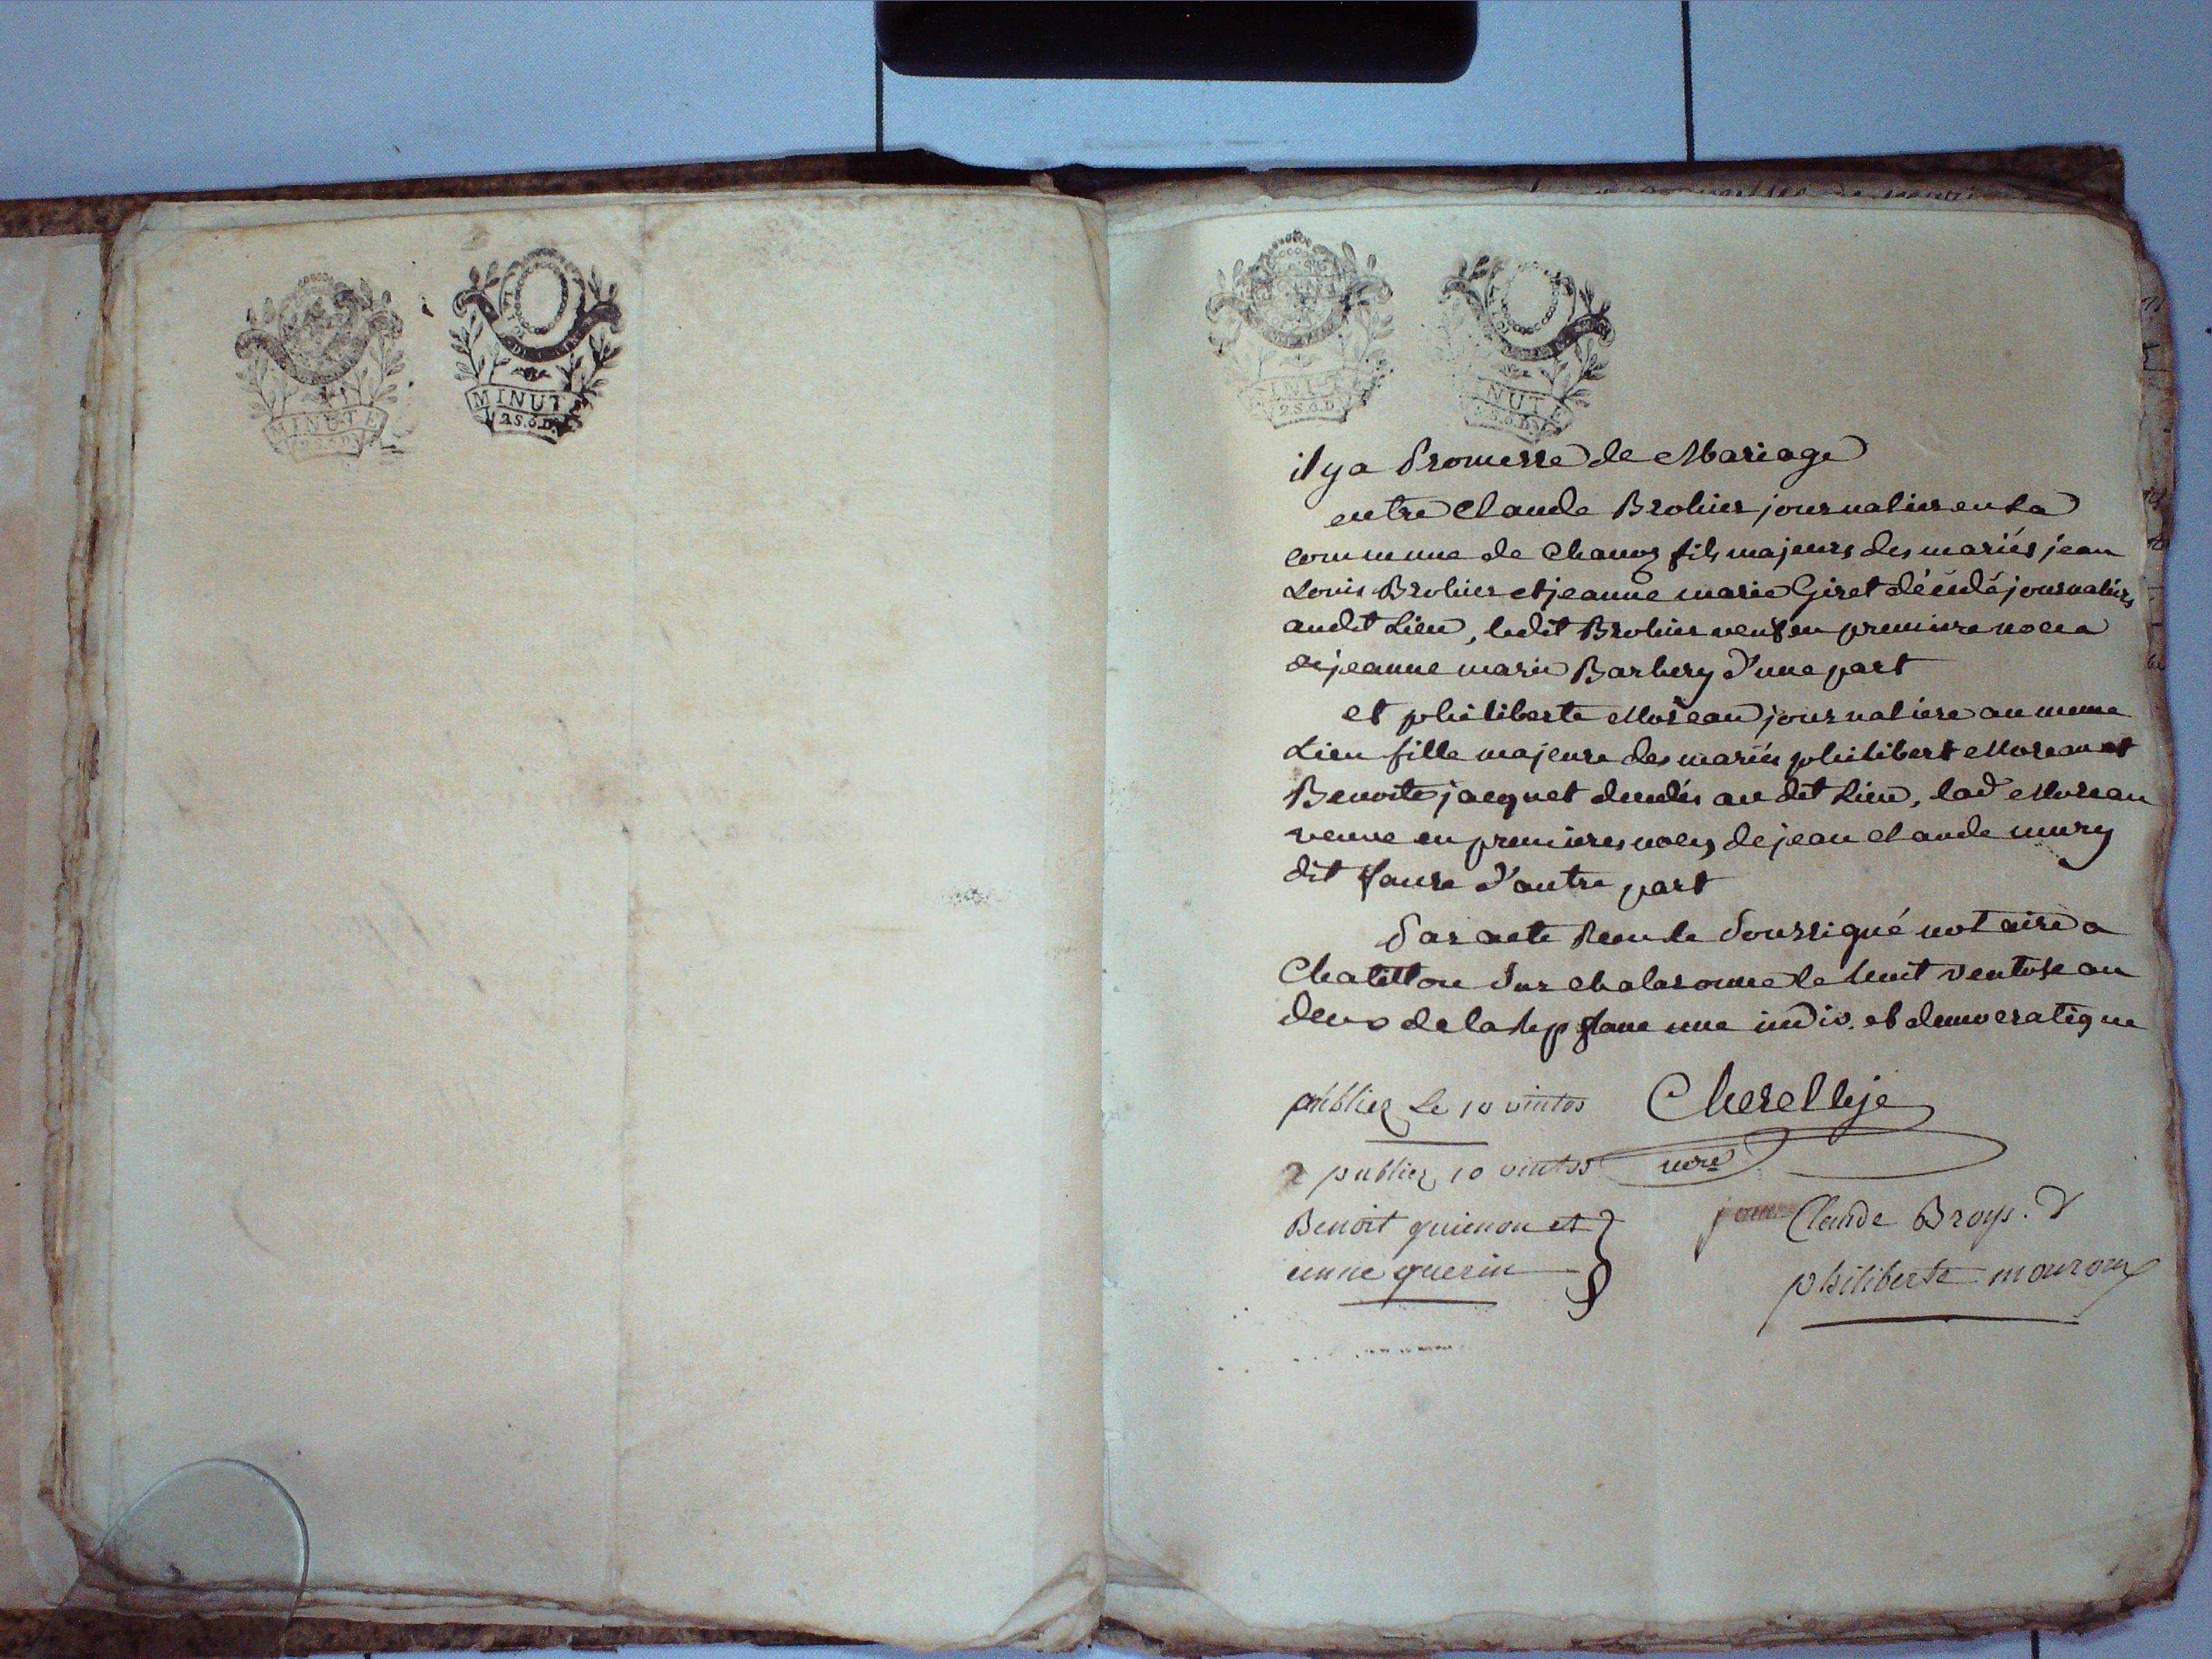 MINUTE
2.S.6.D.
MINUTE
2.S.6.D.
MINUTE
2.S.6.D.
MINUTE
2.S.6.D.
il y a Promesse de Mariage
entre Claude Brohier journalier en la
commune de Chanoz fils majeurs des mariés jean
Louis Brohier et jeanne marie Giret décédé journaliers
audit Lieu, ledit Brohier veuf en premiere noces
de jeanne marie Barbery d'une part
et philiberte Moreau journaliere au meme
Lieu fille majeure des mariés philibert Moreau et
Benoite jacquet decedés au dit Lieu, lad Moreau
veuve en premieres noces de jean claude mury
dit d'autre part
Par acte Recu le Soussigné notaire a
Chatillon Sur chalaronne le huit ventose an
deux de la Rep une indiv. et democratique
publiez Le 10 vintos
2 publiez 10 vintos nore
Benoit et Claude Broy
guerin philiberte